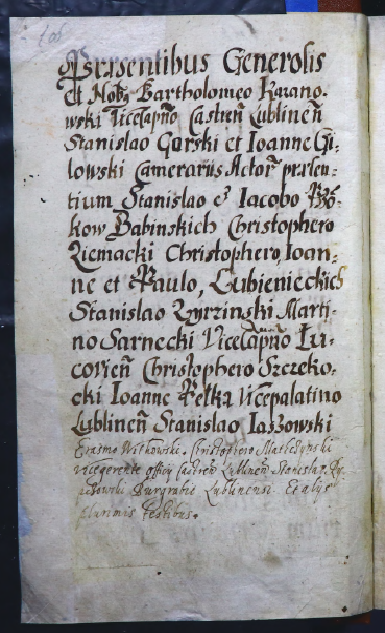 106
Præsentibus Generosis
Et Nobz Bartholomeo Kazano-
wski Vicecapño Castren̄ Lublinen̄
Stanislao Gorski et Ioanne Gi-
lowski Camerariis Actor præsen-
tium Stanislao & Iacobo
kow Babinskich Christophero
Ziemacki Christophero, Ioan-
ne et Paulo, Lubienieckich
Stanislao Zyrzinski Marti-
no Sarnecki Vicecapño Lu-
covien̄ Christophero Szczeko-
cki Ioanne Pełka Vicepalatino
Lublinen̄ Stanislao Iaszowski
Erasmo Witkowski. Christophoro
vicegerente officij Castren̄ Lublinen̄ Stanislao
Burgrabio Lublinensi Et alijs
plurimis testibus.